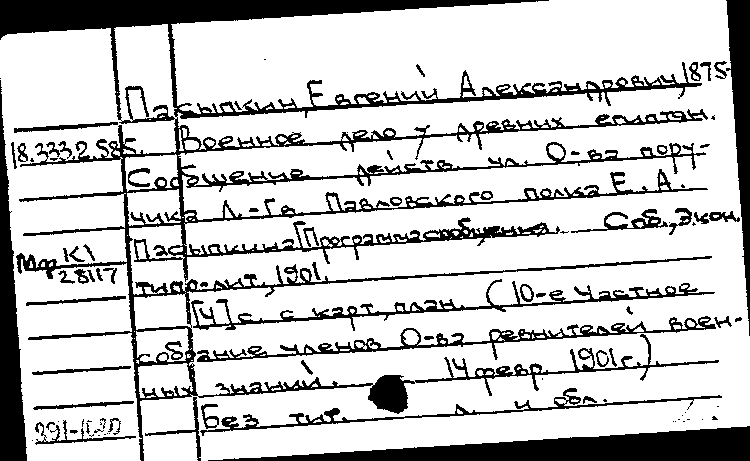 Пасыпкин, Евгений Александрович, 1875-
18.333.2.585. Военное дело у древних египтян.
Сообщение действ. чл. О-ва пору-
чика Л.-Гв. Павловского полка Е. А.
Пасыпкина [Программа сообщения. Спб., Экон.
Мф К1/28117
типо-лит., 1901.
[4] с. с карт., план. (10-е Частное
собрание членов О-ва ревнителей воен-
ных знаний. 14 февр. 1901 г.).
Без тит. л. и обл.